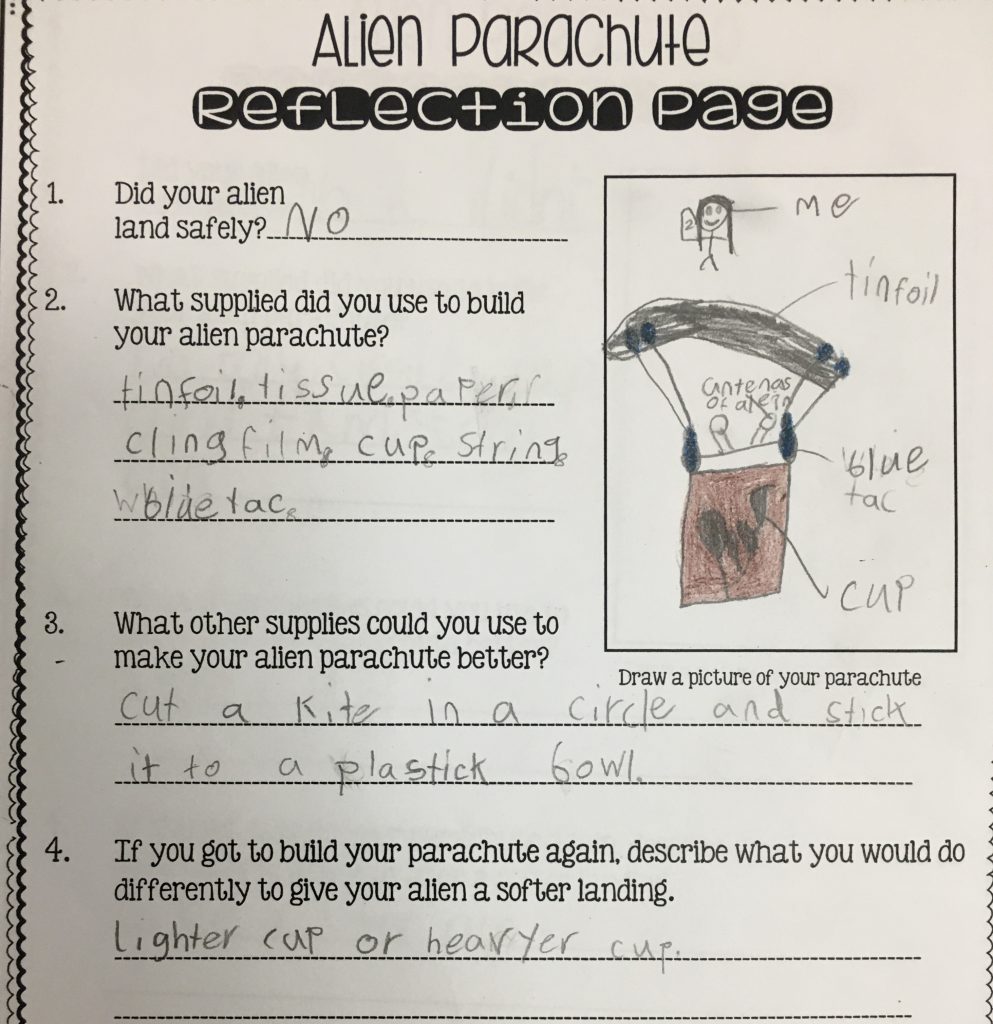 Alien Parachute
Reflection Page
1. Did your alien
land safely? NO
2. What supplied did you use to build
your alien parachute?
tinfoil, tissue paper,
cling film, cup, string,
blue tac.
me
tinfoil
antenas
of alein
blue
tac
cup
Draw a picture of your parachute
3. What other supplies could you use to
make your alien parachute better?
cut a kite in a circle and stick
it to a plastick bowl.
4. If you got to build your parachute again, describe what you would do
differently to give your alien a softer landing.
lighter cup or heavyer cup.